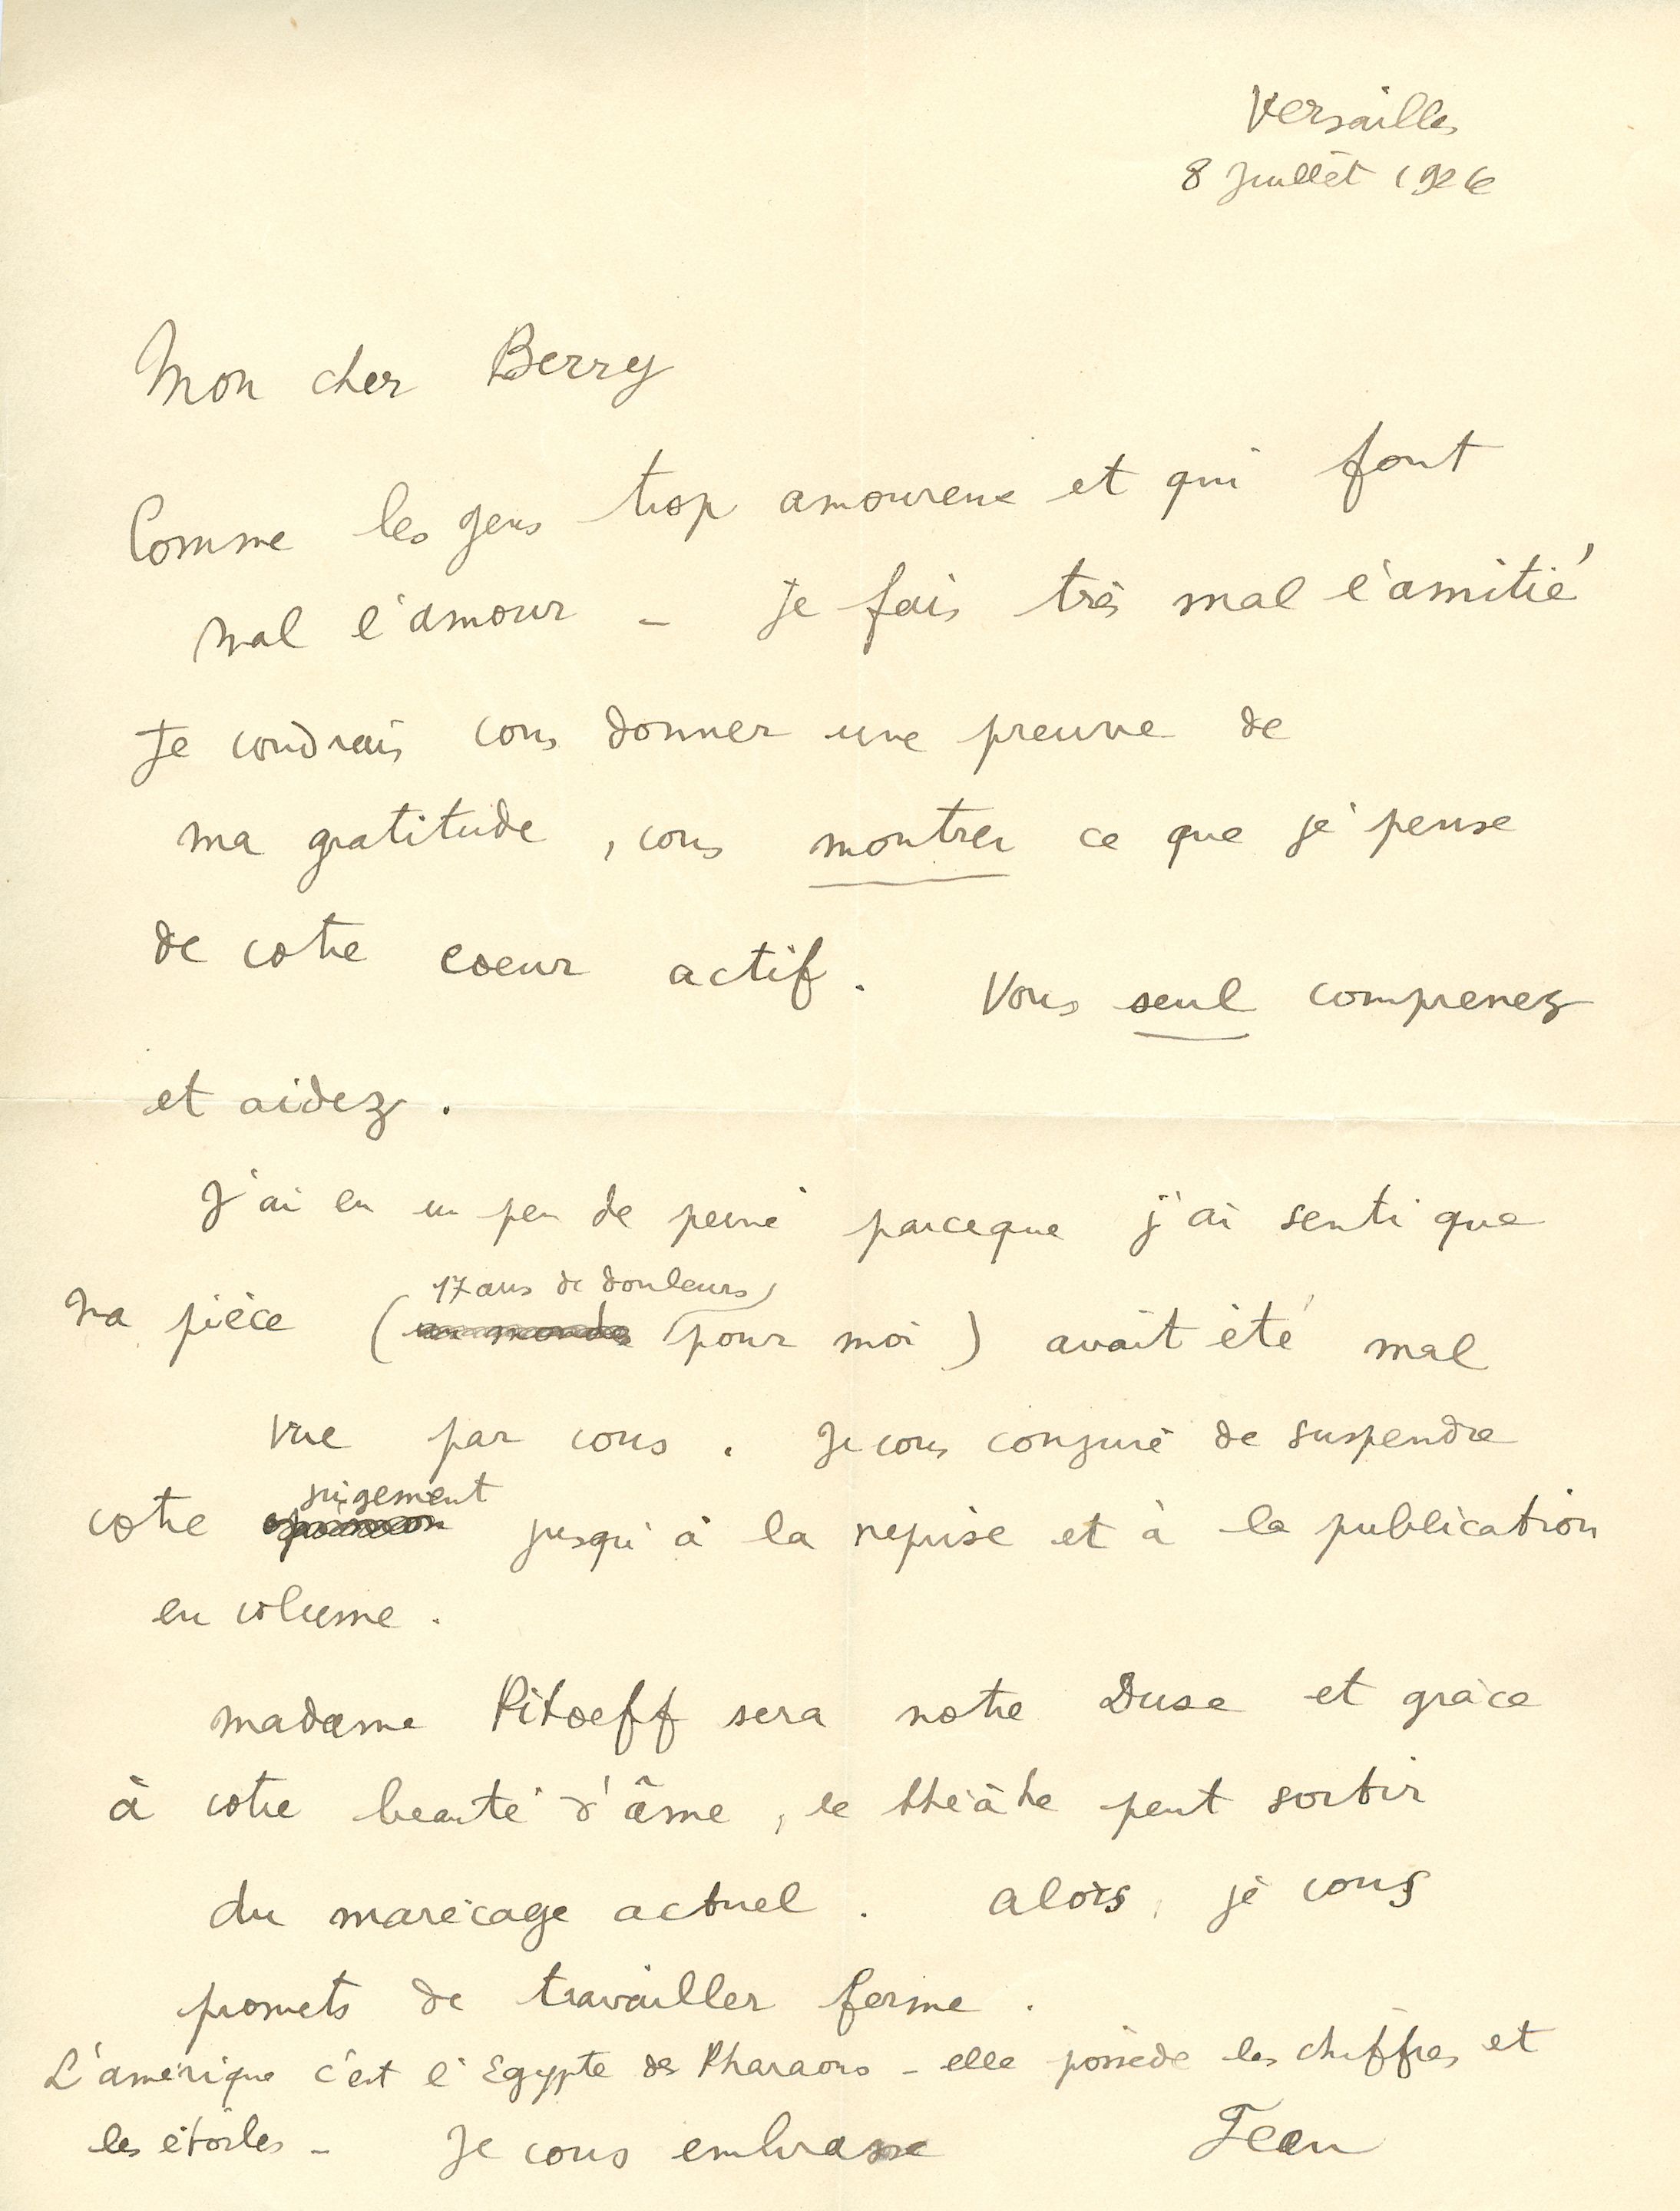 Versailles
8 Juillet 1926
Mon cher Berry
Comme les gens trop amoureux et qui font
mal l'amour _ Je fais très mal l'amitié
Je voudrais vous donner une preuve de
ma gratitude, vous montrer ce que je pense
de votre coeur actif. Vous seul comprenez
et aidez.
J'ai eu un peu de peine parceque j'ai senti que
17 ans de douleurs
ma pièce ( pour moi) avait été mal
vue par vous. Je vous conjure de suspendre
jugement
votre opinion jusqu'à la reprise et à la publication
en volume.
madame Pitoeff sera notre Duse et grâce
à votre beauté d'âme, le théâtre peut sortir
du marécage actuel. alors, je vous
promets de travailler ferme.
L'amérique c'est l'Egypte des Pharaons - elle possède les chiffres et
les étoiles - Je vous embrasse Jean